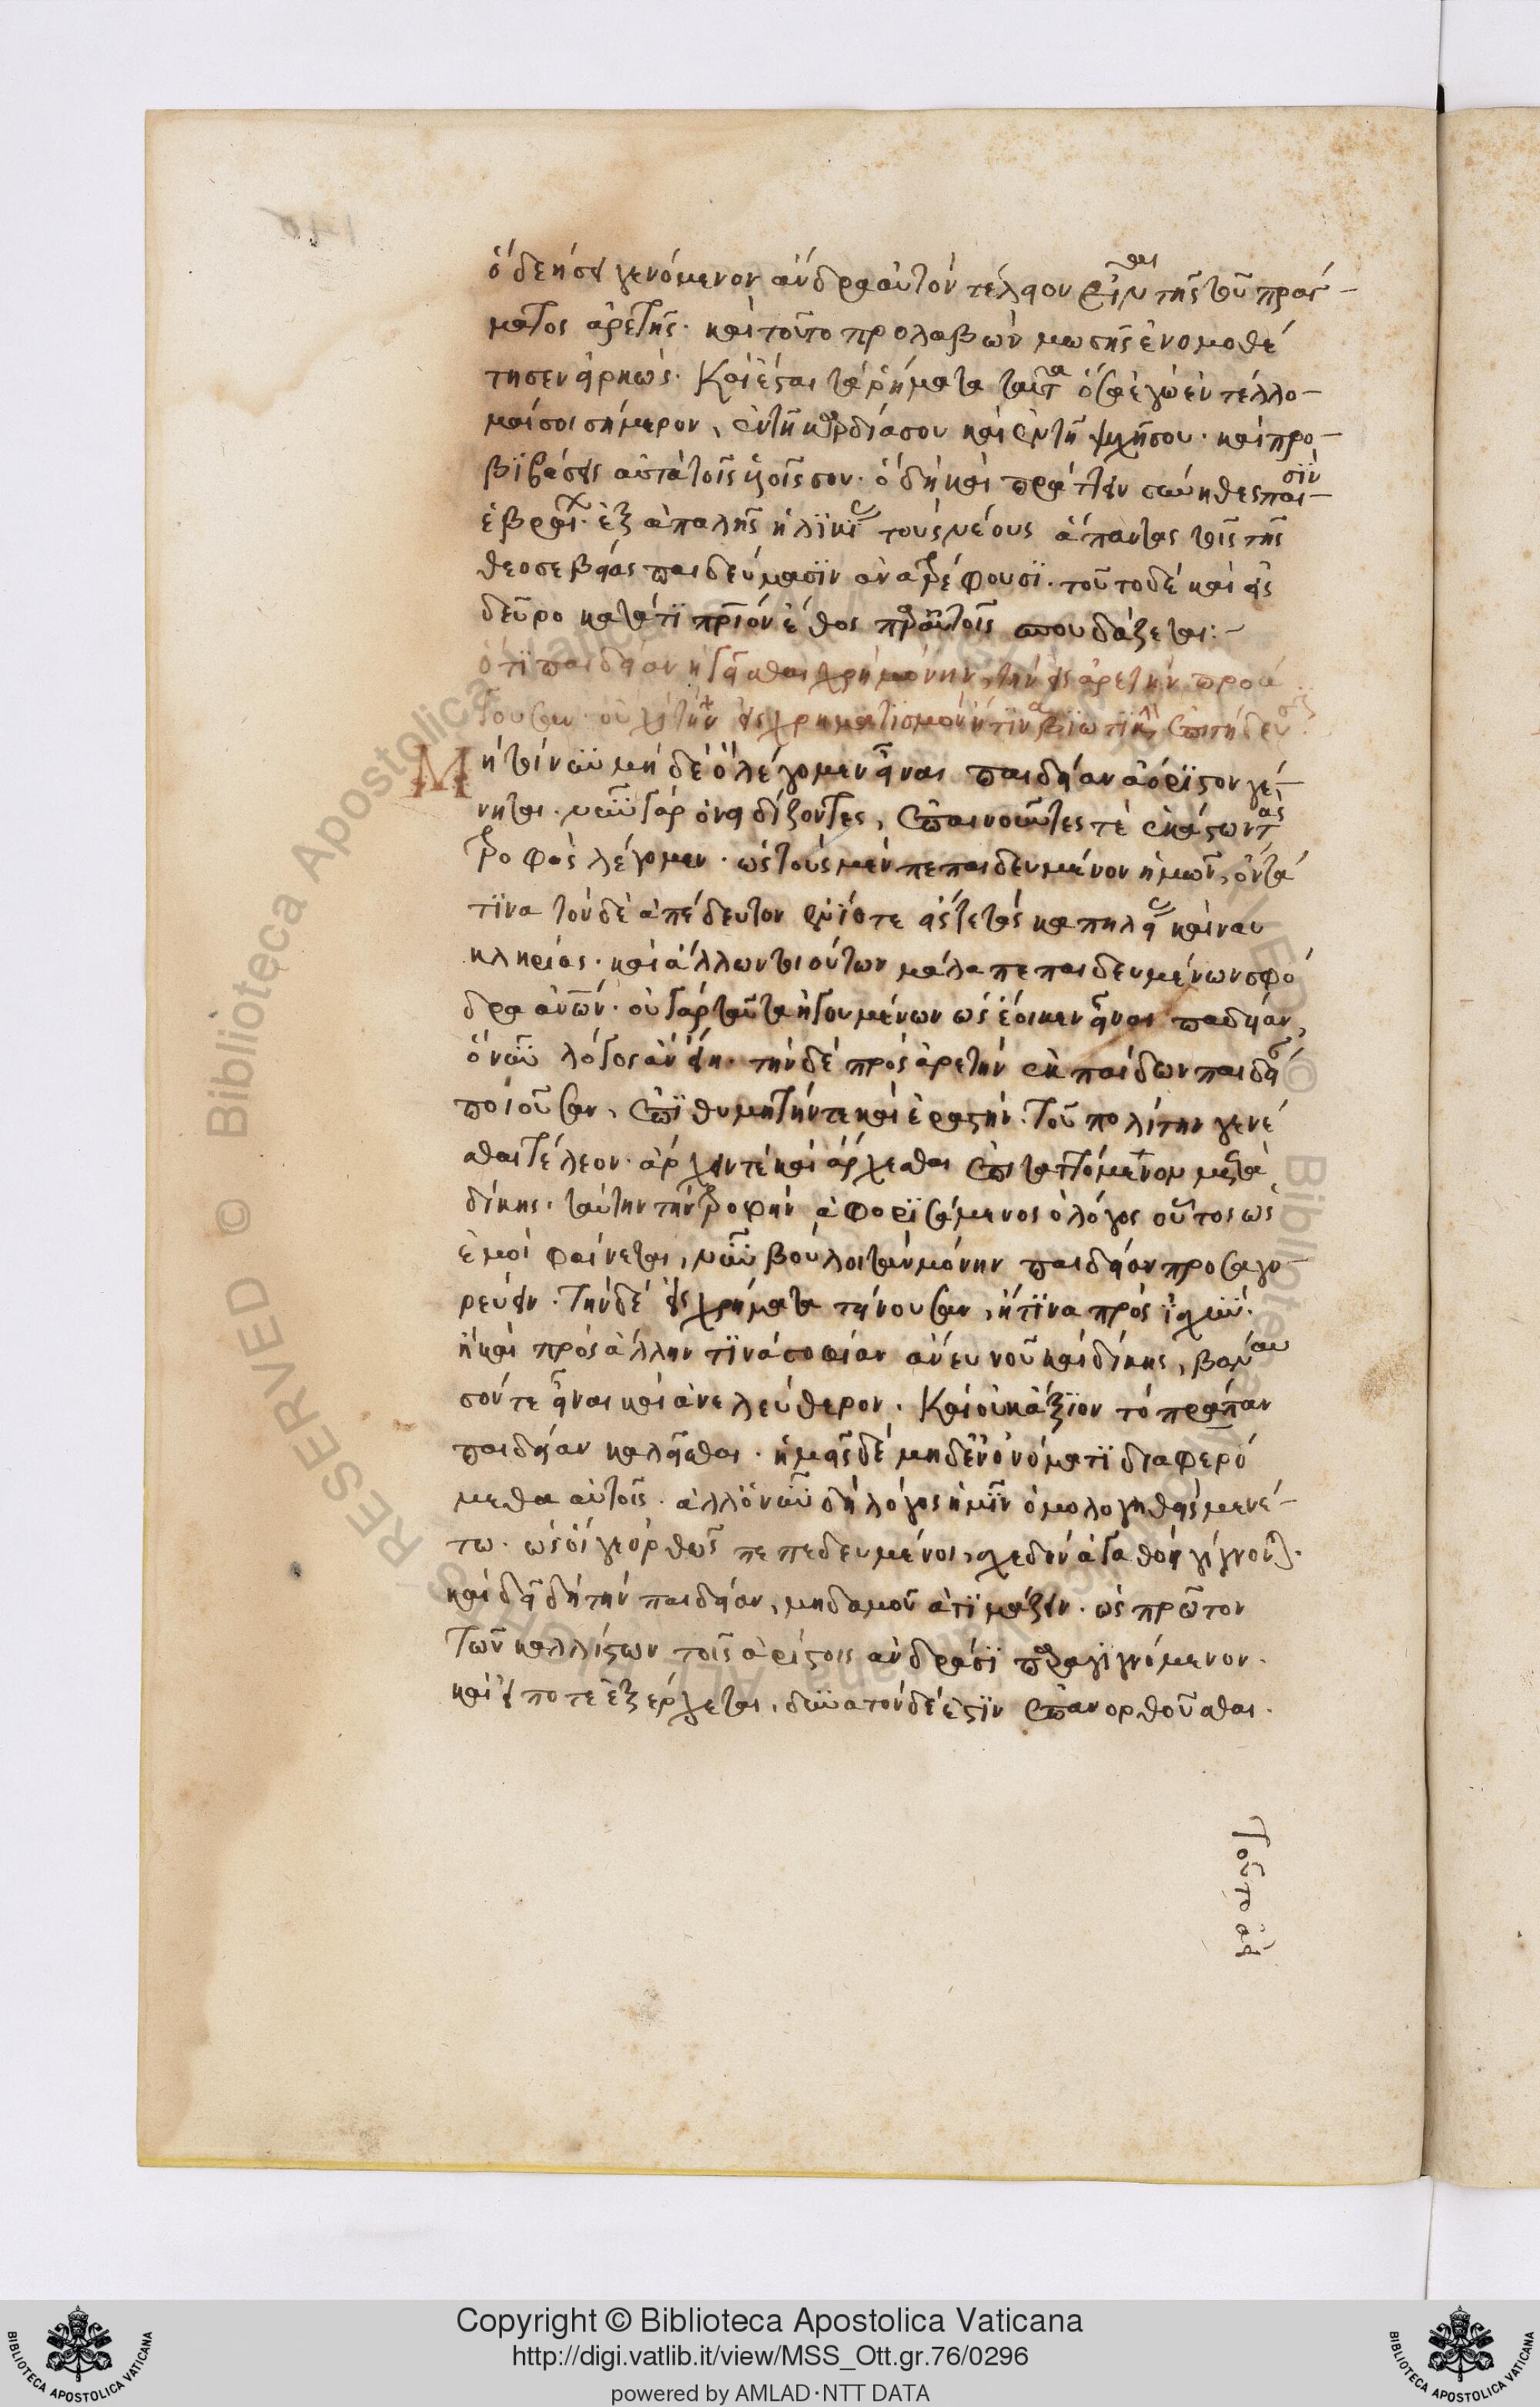 ὃ δεήσει γενόμενον ἄνδρα αὐτὸν τέλειον εἶναι τῆς τοῦ πράγ-
ματος ἀρετῆς. καὶ τοῦτο προλαβὼν μωσῆς ἐνομοθέ
τησεν εἰρηκώς. Καὶ ἔσται τὰ ῥήματα ταῦτα ὅσα ἐγὼ ἐντέλλο-
μαί σοι σήμερον, ἐν τῆ καρδία σου καὶ ἐν τῆ ψυχῆ σου. καὶ προ-
βϊβάσεις αὐτὰ τοῖς υἱοῖς σου. ὃ δὴ καὶ πράττειν σύνηθες παισὶν
ἑβραίων. ἐξ ἀπαλῆς ἡλϊκίας τοὺς νέους ἅπαντας τοῖς τῆς
θεοσεβείας παιδεύμασϊν ἀνατρέφουσϊ. τοῦτο δὲ καὶ εἰς
δεῦρο κατά τϊ πάτριον ἔθος παρ' αὐτοῖς σπουδάζεται:-
ὅτϊ παιδείαν ἡγεῖσθαι χρὴ μόνην, τὴν εἰς ἀρετὴν προά
γουσαν. οὐχὶ τὴν εἰς χρηματϊσμὸν ἤ τϊνα βϊωτϊκὴν ἐπιτήδευσιν
Μὴ τοίνυν μὴδὲ ὃ λέγομεν εἶναι παιδείαν ἀόρϊστον γέ-
νηται. νῦν γὰρ ὀνειδίζοντες, ἐπαινοῦντές τε ἑκάστων τὰς
τροφὰς λέγομεν. ὡς τοὺς μὲν πεπαιδευμένον ἡμῶν, ὄντά
τϊνα τὸν δὲ ἀπέδευτον ἐνίοτε εἴς τε τὰς καπηλείας καὶ ναυ
κληρίας. καὶ ἄλλων τοιούτων μάλα πεπαιδευμένων σφό
δρα ἀνων. οὐ γὰρ ταῦτα ἡγουμένων ὡς ἔοικεν εἶναι παδείαν,
ὁ νῦν λόγος ἂν εἴη. τὴν δὲ πρὸς ἀρετὴν ἐκ παίδων παιδείαν
ποιοῦσαν, ἐπϊθυμητήν τε καὶ ἐραστὴν. τοῦ πολίτην γενέ
σθαι τέλεον. ἄρχειν τε καὶ ἄρχεσθαι ἐπιταττόμενον μετὰ
δίκης. ταύτην τὴν τροφὴν ἀφορϊσάμενος ὁ λόγος οὗτος ὡς
ἐμοὶ φαίνεται, νῦν βούλοιτ' ἂν μόνην παιδείαν προσαγο-
ρεύειν. τὴν δὲ εἰς χρήματα τήνουσαν, ἤ τϊνα πρὸς ἰσχύν.
ἢ καὶ πρὸς ἄλλην τϊνὰ σοφίαν ἄνευ νοῦ καὶ δίκης, βαναυ
σόν τε εἶναι καὶ ἀνελεύθερον. Καὶ οὐκ ἄξϊον τὸ παράπαν
παιδείαν καλεῖσθαι. ἡμεῖς δὲ μηδὲν ὀνόματϊ διαφερό
μεθα αὐτοῖς. ἀλλ' ὁ νῦν δὴ λόγος ἡμῖν ὁμολογηθεὶς μενέ-
τω. ὡς οἵ γε ὀρθῶς πεπεδευμένοι, σχεδὸν ἀγαθοὶ γίγνονται.
καὶ δεῖ δὴ τὴν παιδείαν, μηδαμοῦ ἀτϊμάζειν. ὡς πρῶτον
τῶν καλλίστων τοῖς ἀρίστοις ἀνδράσϊ παραγϊγνόμενον.
καὶ εἴ ποτε ἐξέρχεται, δυνατὸν δέ ἐστϊν ἐπανορθοῦσθαι.
Copyright © Biblioteca Apostolica Vaticana
http://digi.vatlib.it/view/MSS_Ott.gr.76/0296
powered by AMLAD·NTT DATA